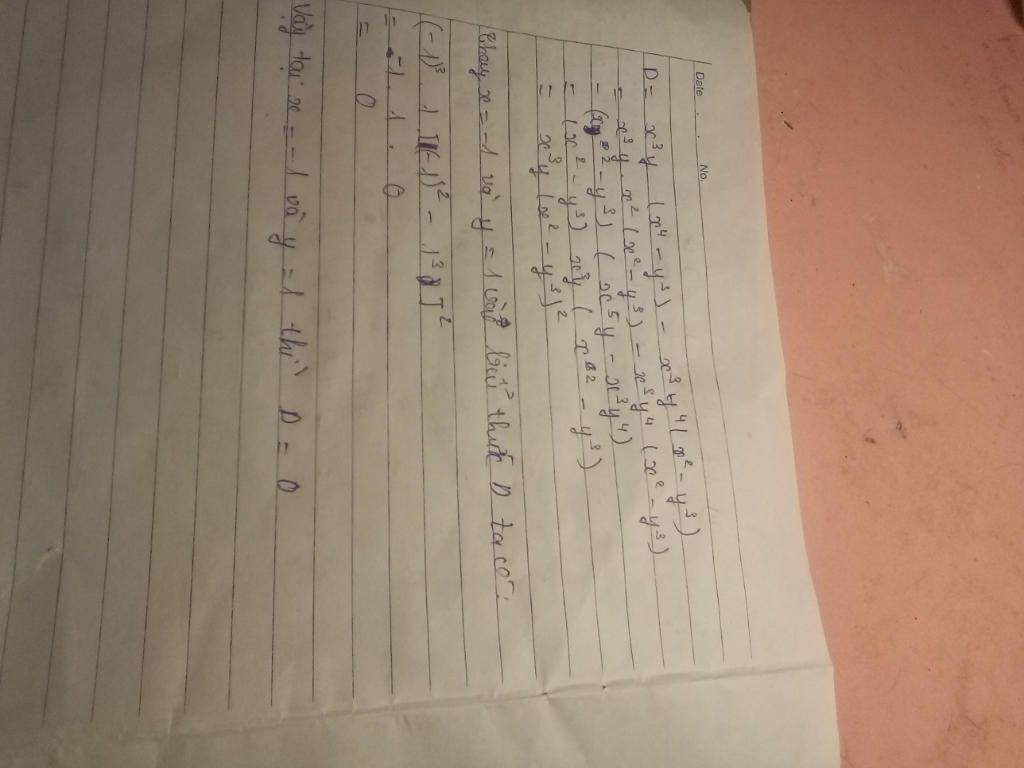 Date . . . No.
D = x³y (x⁴ - y³) - x³y⁴ (x² - y³)
= x³y . x² (x² - y³) - x³y⁴ (x² - y³)
= (x² - y³) (x⁵y - x³y⁴)
= (x² - y³) x³y (x² - y³)
= x³y (x² - y³)²
Thay x = -1 và y = 1 vào biểu thức D ta có:
(-1)³ . 1 [(-1)² - 1³]²
= -1 . 1 . 0
= 0
Vậy tại x = -1 và y = 1 thì D = 0